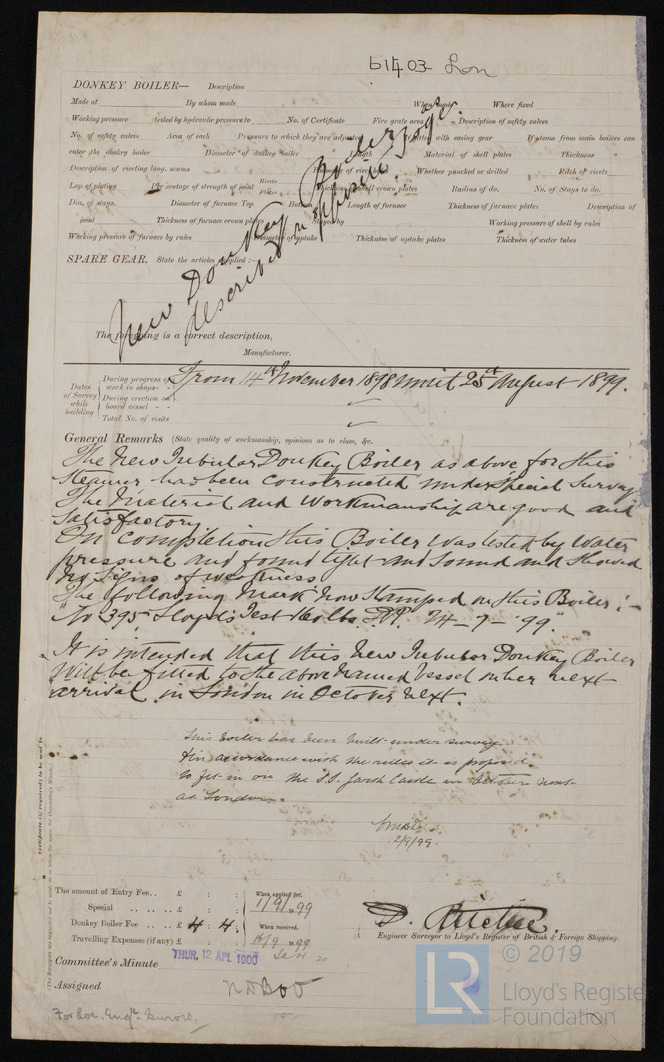 61403 Lon
DONKEY BOILER— Description
Made at By whom made When made Where fixed
Working pressure tested by hydraulic pressure to No. of Certificate Fire grate area Description of safety valves
No. of safety valves Area of each Pressure to which they are adjusted fitted with easing gear If steam from main boilers can
enter the donkey boiler Diameter of donkey boiler Length Material of shell plates Thickness
Description of riveting long. seams of rivets Whether punched or drilled Pitch of rivets
Lap of plating Per centage of strength of joint Rivets Plates crown plates Radius of do. No. of Stays to do.
Dia. of stays. Diameter of furnace Top Bottom Length of furnace Thickness of furnace plates Description of
joint Thickness of furnace crown plates Stayed by Working pressure of shell by rules
Working pressure of furnace by rules Diameter of uptake Thickness of uptake plates Thickness of water tubes
New Donkey Boiler as
described on
SPARE GEAR. State the articles supplied:—
The foregoing is a correct description,
Manufacturer.
Dates of Survey while building
During progress of work in shops - - From 14th November 1898 until 25th August 1899.
During erection on board vessel - - -
Total No. of visits
General Remarks (State quality of workmanship, opinions as to class, &c.
The New Tubular Donkey Boiler as above for this
Steamer has been Constructed under Special Survey
The Material and Workmanship are good and
Satisfactory.
On Completion this Boiler was tested by Water
pressure and found tight and Sound and Showed
no Signs of weakness
The following Mark now Stamped on this Boiler:-
"No 395 Lloyds Test lbs 24-7-'99"
It is intended that this New Tubular Donkey Boiler
will be fitted to the above named Vessel on her next
arrival in London in October next.
This Boiler has been built under survey
& in accordance with the rules it is proposed
to fit in on the S.S. Garth Castle in October next
at London.
2/9/99.
Certificate (if required) to be sent to
The amount of Entry Fee.. £ : :
Special .. .. .. .. £ : :
Donkey Boiler Fee .. .. £ 4 : 4 :
Travelling Expenses (if any) £ : :
When applied for,
1/9/1899
When received,
16/9 1899
D. Ritchie.
Engineer Surveyor to Lloyd's Register of British & Foreign Shipping.
Committee's Minute THUR, 12 APL 1900
Assigned
For Lon. Engr. Survors.
© 2019
LR Lloyd's Register
Foundation